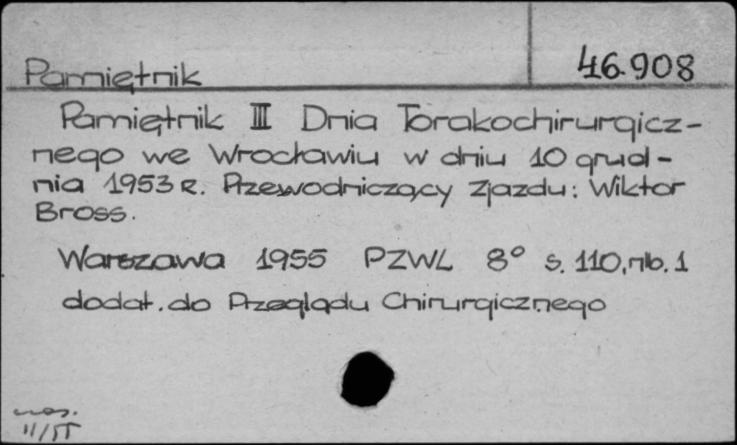 Pamiętnik
46.908
Pamiętnik III Dnia Torakochirurgicz-
nego we Wrocławiu w dniu 10 grud-
nia 1953 R. Przewodniczący Zjazdu: Wiktor
Bross.
Warszawa 1955 PZWL 8° s. 110, nlb. 1
dodat. do Przeglądu Chirurgicznego
11/55